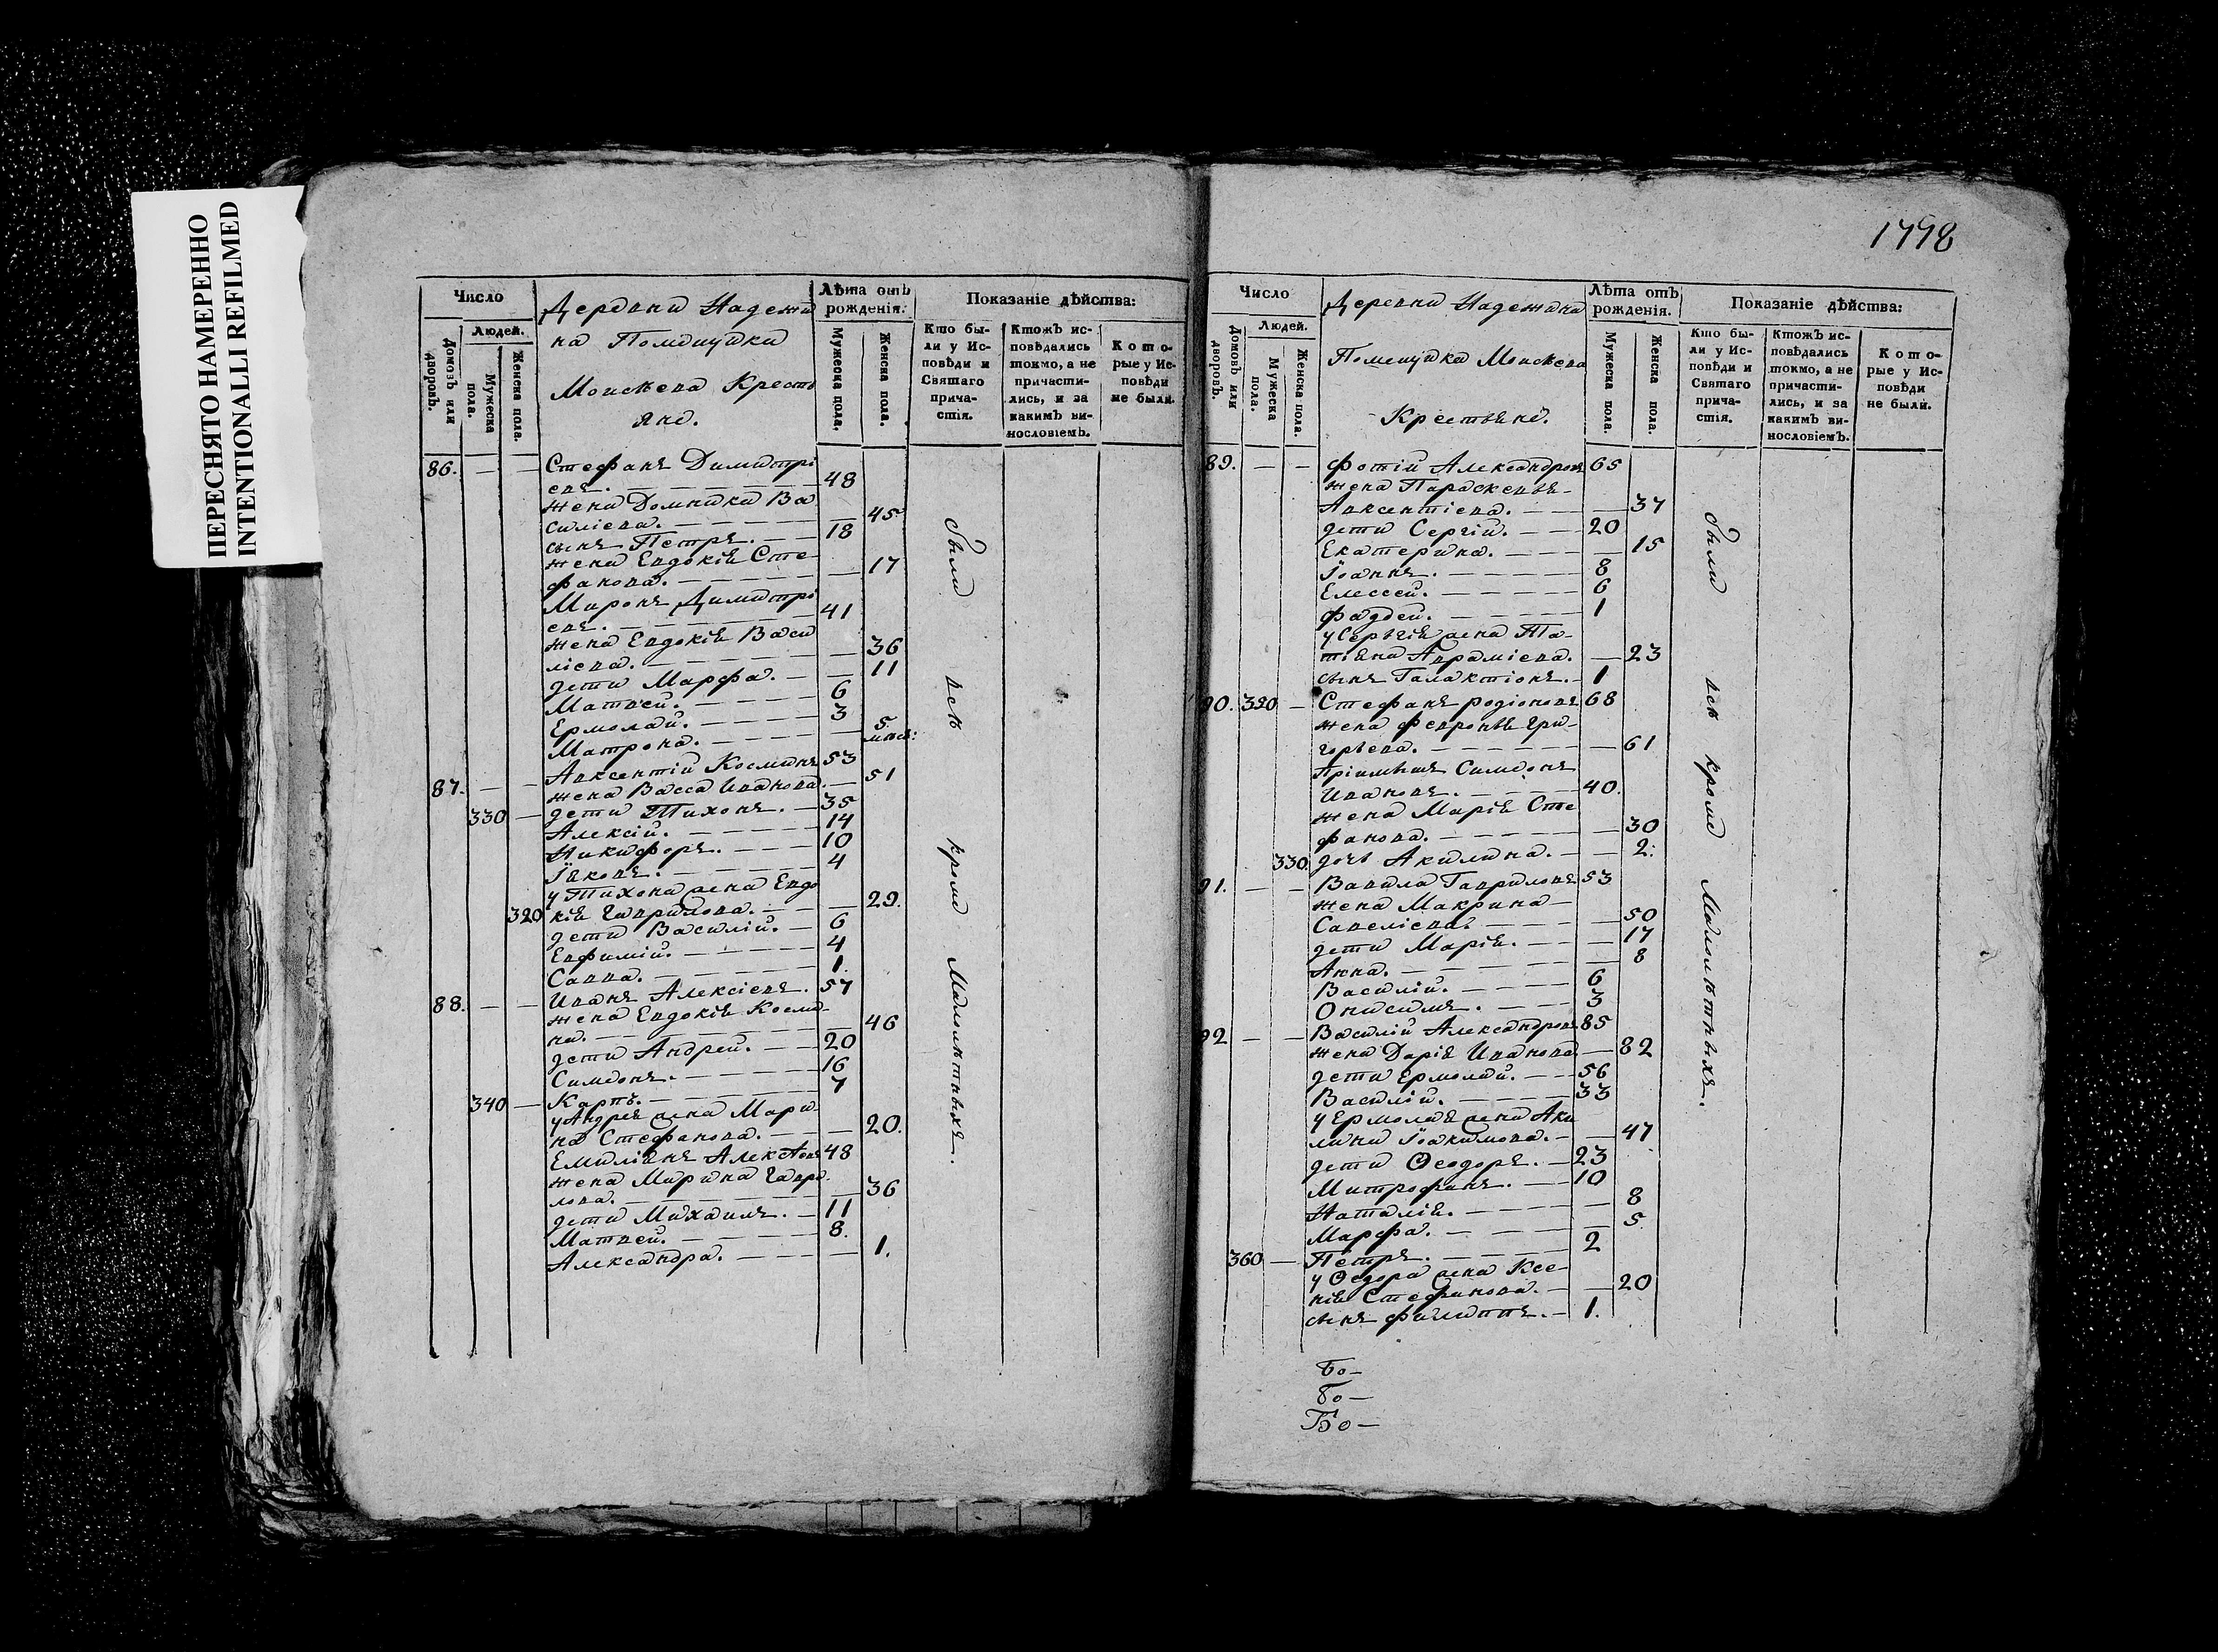 ПЕРЕСНЯТО НАМЕРЕННО
INTENTIONALLI REFILMED
Число
Людей.
Домовъ или дворовъ.
Мужеска пола.
Женска пола.
Деревни Надежди
на Помѣщики
Моисѣева Кресть
яне.
Лѣта отъ рожденія.
Мужеска пола.
Женска пола.
Показаніе дѣйства:
Кто бы-
ли у Ис-
повѣди и
Святаго
прича-
стія.
Ктожъ ис-
повѣдались
токмо, а не
причасти-
лись, и за
какимъ ви-
нословіемъ.
Кото-
рые у Ис-
повѣди
не были.
86. — — Стефанъ Димитрі
евъ. — 48
жена Домника Ва
силіева. — — 45
сынъ Петръ. — 18
жена Евдокія Сте-
фанова. — — 17
Миронъ Димитрі
евъ. — 41
жена Евдокія Васи
ліева. — — 36
дети Марфа. — — 11
Матвей. — 6
Ермолай. — 3
Матрона. — — 5 мѣся:
87. — — Авксентій Косминъ 53
жена Васса Иванова. — 51
330 — дети Тихонъ. — 35
Алексій. — 14
Никифоръ. — 10
Іаковъ. — 4
у Тихона жена Евдо
320 кія Гаврилова. — — 29.
дети Василій. — 6
Евфимій. — 4
Савва. — 1.
88. — — Иванъ Алексіевъ. 57
жена Евдокія Косми-
на. — — 46
дети Андрей. — 20
Симеонъ. — 16
340 — Карпъ. — 7
у Андрея жена Мари-
на Стефанова. — — 20.
Емиліанъ Алексѣевъ 48
жена Марина Гаври-
лова. — — 36
дети Михаилъ. — 11
Матвей. — 8.
Александра. — — 1.
были всѣ кроме Малолѣтныхъ.
1778
Число
Людей.
Домовъ или дворовъ.
Мужеска пола.
Женска пола.
Деревни Надеждина
Помещики Моисѣева
Крестьяне.
Лѣта отъ рожденія.
Мужеска пола.
Женска пола.
Показаніе дѣйства:
Кто бы-
ли у Ис-
повѣди и
Святаго
прича-
стія.
Ктожъ ис-
повѣдались
токмо, а не
причасти-
лись, и за
какимъ ви-
нословіемъ.
Кото-
рые у Ис-
повѣди
не были.
89. — — Фотій Александровъ 65
жена Параскевья —
Авксентіева. — — 37
дети Сергій. — 20
Екатерина. — — 15
Іоаннъ. — 8
Елессей. — 6
Фаддей. — 1
у Сергія жена Та-
тіана Авраміева. — 23
сынъ Галактіонъ. — 1
90. 350 — Стефанъ Родіоновъ 68
жена Февронья Гри-
горьева. — — 61
Пріимышъ Симеонъ
Ивановъ. — 40.
жена Марія Сте
фанова. — — 30
330. дочь Акилина. — — 2.
91. — — Вавила Гавриловъ 53
жена Макрина —
Савеліева — — 50
дети Марія. — — 17
Анна. — — 8
Василій. — 6
Онисимъ. — 3
92 — — Василій Александровъ 85
жена Дарія Иванова — 82
дети Ермолай. — 56
Василій. — 33
у Ермолая жена Аки
лина Іоакимова. — — 47
дети Ѳеодоръ. — 23
Митрофанъ. — 10
Наталія. — — 8
Марфа. — — 5.
360 — Петръ. — 2
у Ѳеодора жена Ксе-
нія Стефанова. — — 20
сынъ Филиппъ. — 1.
были всѣ кроме Малолѣтныхъ.
Бо—
Бо—
Бо—